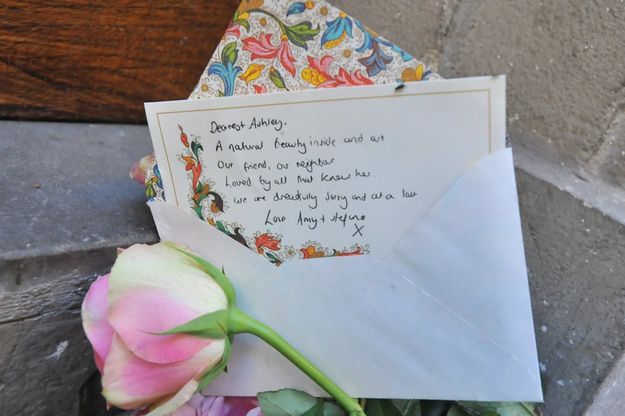 Dearest Ashley.
A natural beauty inside and out
Our friend, our neighbor
Loved by all that knew her.
we are dreadfully sorry and at a loss
Love Amy + Stefano
X